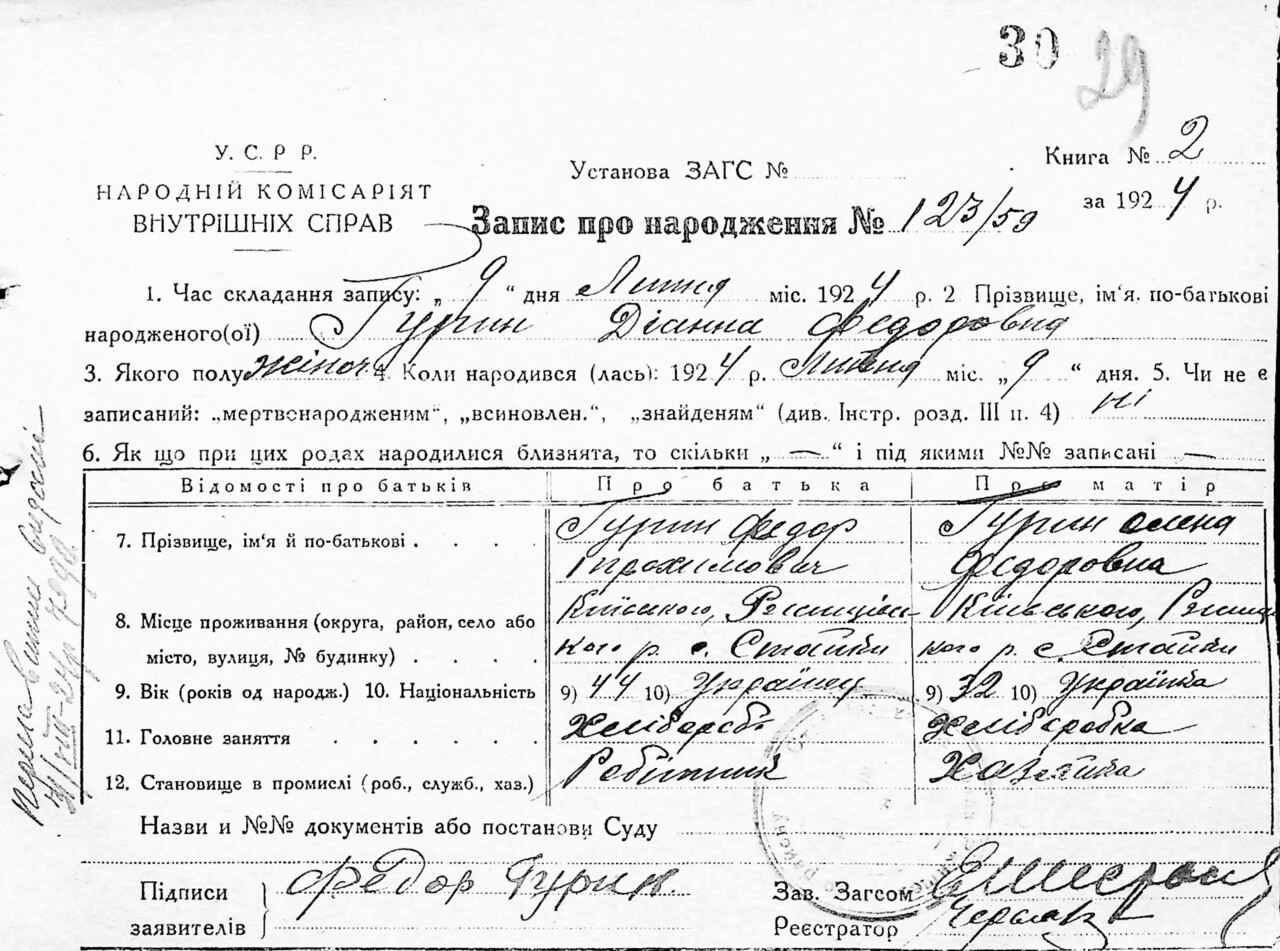 30 29
У. С. Р Р.
НАРОДНІЙ КОМІСАРІЯТ
ВНУТРІШНІХ СПРАВ
Установа ЗАГС №
Книга № 2
за 1924 р.
Запис про народження № 123/59
1. Час складання запису: „ 9 “ дня Липня міс. 1924 р. 2 Прізвище, ім‘я, по-батькові
народженого(ої) Гурин Діанна Федоровна
3. Якого полу жіноч. 4. Коли народився (лась): 1924 р. Липня міс. „ 9 “ дня. 5. Чи не є
записаний: „мертвонародженим“, „всиновлен.“, „знайденям“ (див. Інстр. розд. III п. 4) ні
6. Як що при цих родах народилися близнята, то скільки „ — “ і під якими №№ записані —
Відомості про батьків Про батька Про матір
7. Прізвище, ім‘я й по-батькові . . . . Гурин Федор Гурин Олена
Трохимович Федоровна
8. Місце проживання (округа, район, село або Київського, Київського,
місто, вулиця, № будинку) . . . . кого р. с. Стайки кого р. с. Стайки
9. Вік (років од народж.) 10. Національність 9) 44 10) Українец 9) 32 10) Українка
11. Головне заняття . . . . . . Хлібороб Хлібаробка
12. Становище в промислі (роб., служб., хаз.) Робітник Хазяйка
Назви и №№ документів або постанови Суду
Підписи
заявителів
Федор Гурин.
Зав. Загсом
Реєстратор